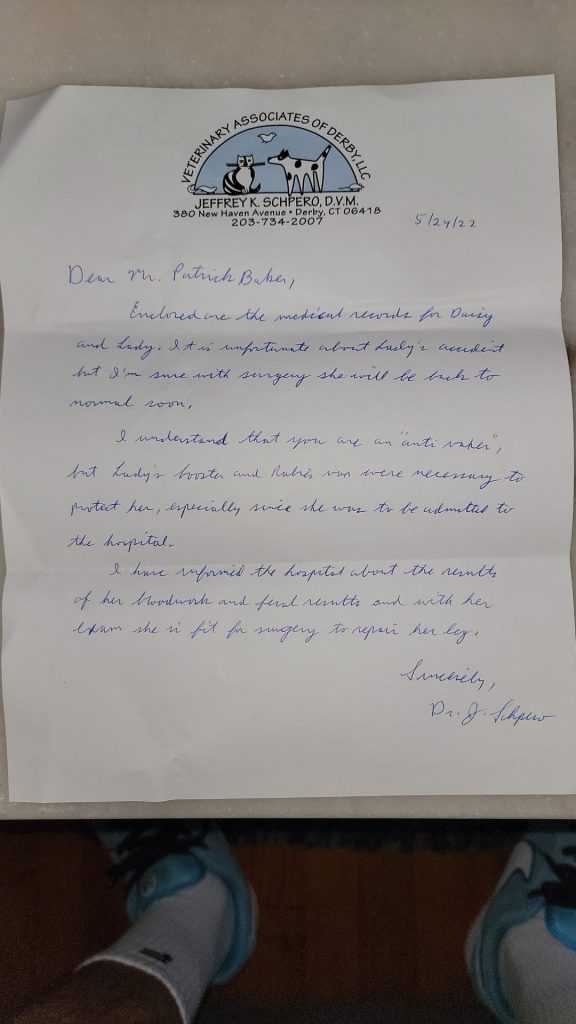 VETERINARY ASSOCIATES OF DERBY, LLC
JEFFREY K. SCHPERO, D.V.M.
380 New Haven Avenue • Derby, CT 06418
203-734-2007
5/24/22
Dear Mr. Patrick Baker,
Enclosed are the medical records for Daisy
and Lady. It is unfortunate about Lady's accident
but I'm sure with surgery she will be back to
normal soon.
I understand that you are an "anti vaxer",
but Lady's booster and Rabies vax were necessary to
protect her, especially since she was to be admitted to
the hospital.
I have informed the hospital about the results
of her bloodwork and fecal results and with her
exam she is fit for surgery to repair her leg.
Sincerely,
Dr. J. Schpero